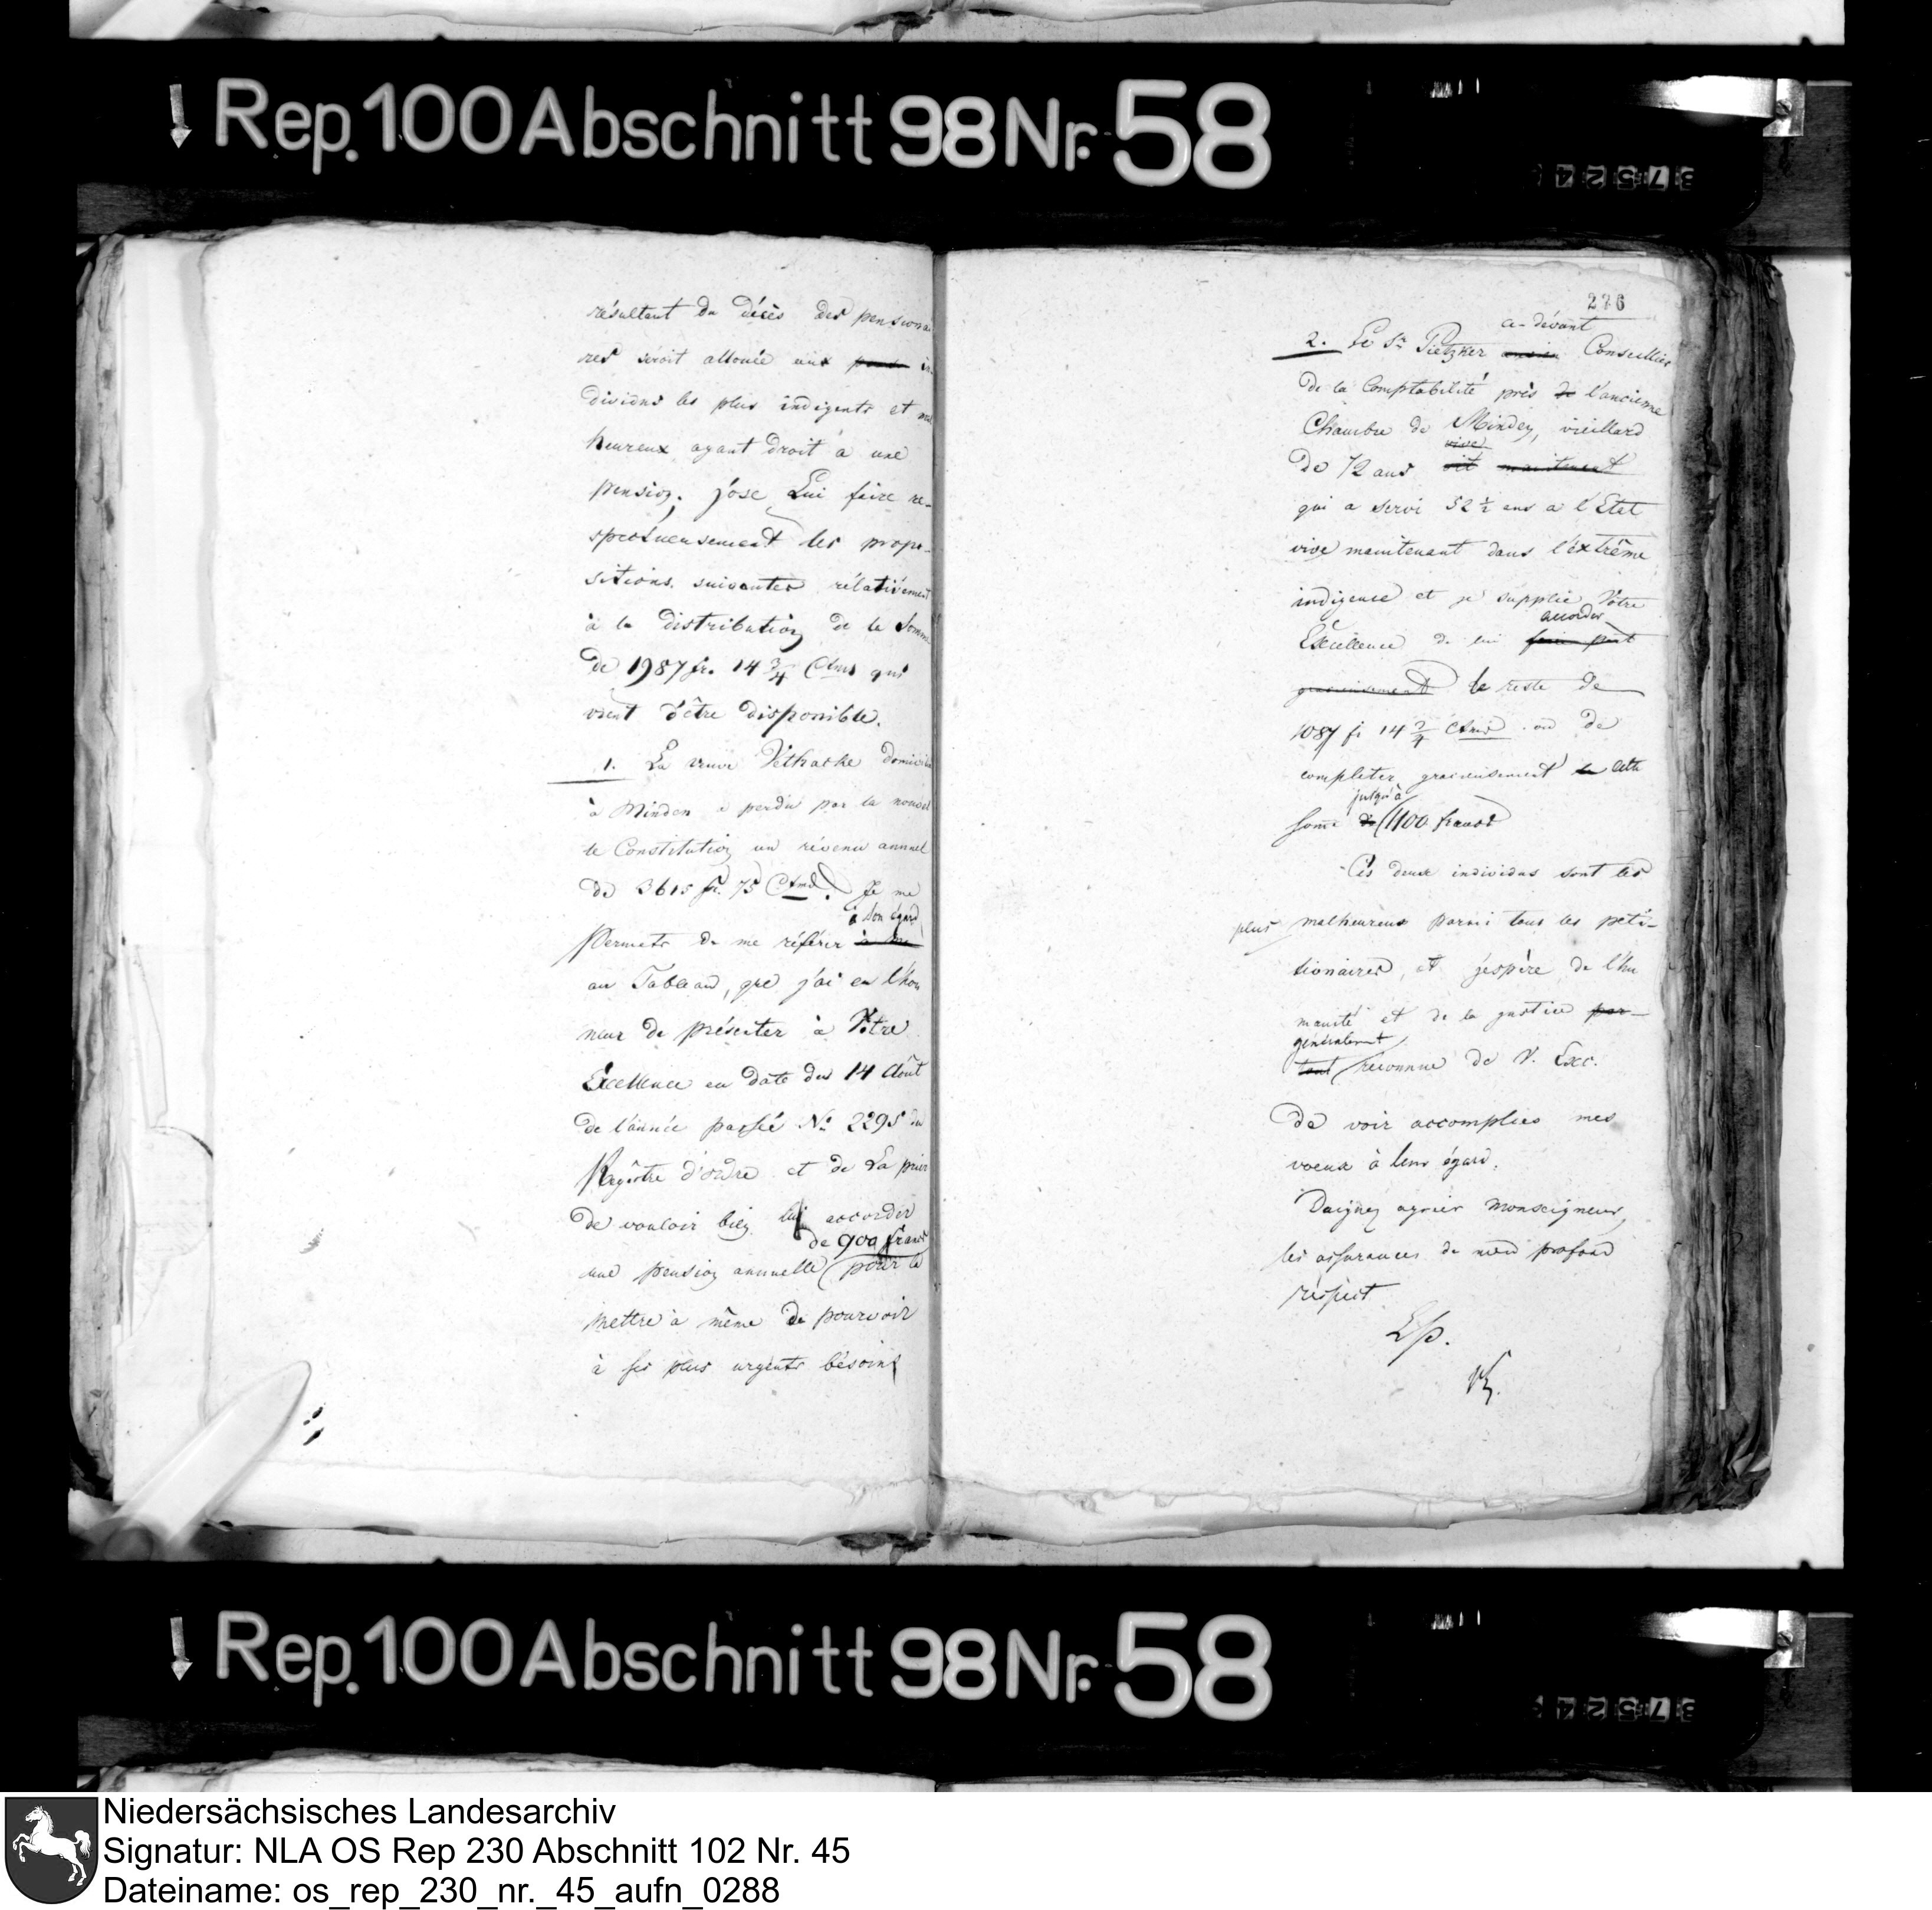 Rep. 100 Abschnitt 98 Nr. 58
résultant du décès des pensionai
res seroit allouée aux in
dividus les plus indigents et mal
heureux ayant droit à une
pension; j'ose Lui faire re-
spectueusement les propo-
sitions suivantes rélativement
à la distribution de la Somme
de 1987 fr. 14 3/4 Ctms qui
vient d'être disponible.
1. La veuve Vethacke domicili
à Minden a perdu par la nouvel
le Constitution un révenu annuel
de 3615 fr. 75 Ctms. Je me
à son égard
permets de me référer
au Tableau, que j'ai eu l'hon
neur de présenter à Votre
Excellence en date du 14 Août
de l'année passée No. 2295 du
Regîstre d'ordre et de La prier
de vouloir bien lui accorder
de 900 francs
une pension annuelle pour la
mettre à même de pourvoir
à ses plus urgents bésoins
226
ci-dévant
2. Le Sr. Pietzker ancien Conseiller
de la Comptabilité près de l'ancienne
Chambre de Minden, vieillard
vive
de 72 ans vit maintenant
qui a servi 52 1/2 ans a l'Etat
vive maintenant dans l'éxtrême
indigence et je supplie Votre
accorder
Excellence de lui
gracieusement le reste de
1087 fr 14 3/4 Ctms ou de
completer gracieusement la cette
jusqu'à
some de 1100 francs
Ces deux individus sont les
plus malheureux parmi tous les péti-
tionaires, et j'espère de l'hu
manité et de la justice par
généralement
tout reconnue de V. Exc.
de voir accomplies mes
voeux à leur égard.
Daignez agréer Monseigneur,
les assurances de mon profond
réspect
Rep. 100 Abschnitt 98 Nr. 58
Niedersächsisches Landesarchiv
Signatur: NLA OS Rep 230 Abschnitt 102 Nr. 45
Dateiname: os_rep_230_nr._45_aufn_0288